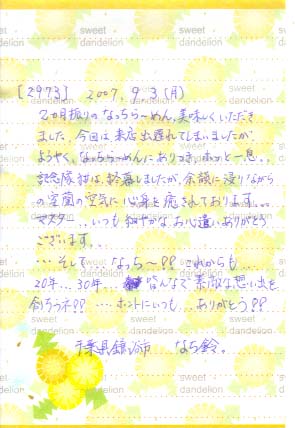 sweet dandelion
[2973] 2007. 9. 3 (月)
2カ月振りのなっちらーめん、美味しくいただき
ました。今回は来店出遅れてしまいましたが
ようやく、なっちらーめんにありつき、ホッと一息。。
記念隊は、終幕しましたが、余韻に浸りながら
の空気に心身を癒されております。。
マスター… いつも細やかなお心遣いありがとう
ございます。
… そして なっち〜!! これからも
20年… 30年… 皆んなで素敵な想い出を
創ろうネ!! … ホントにいつも… ありがとう!!
千葉県 市 なち鈴。
sweet dandelion